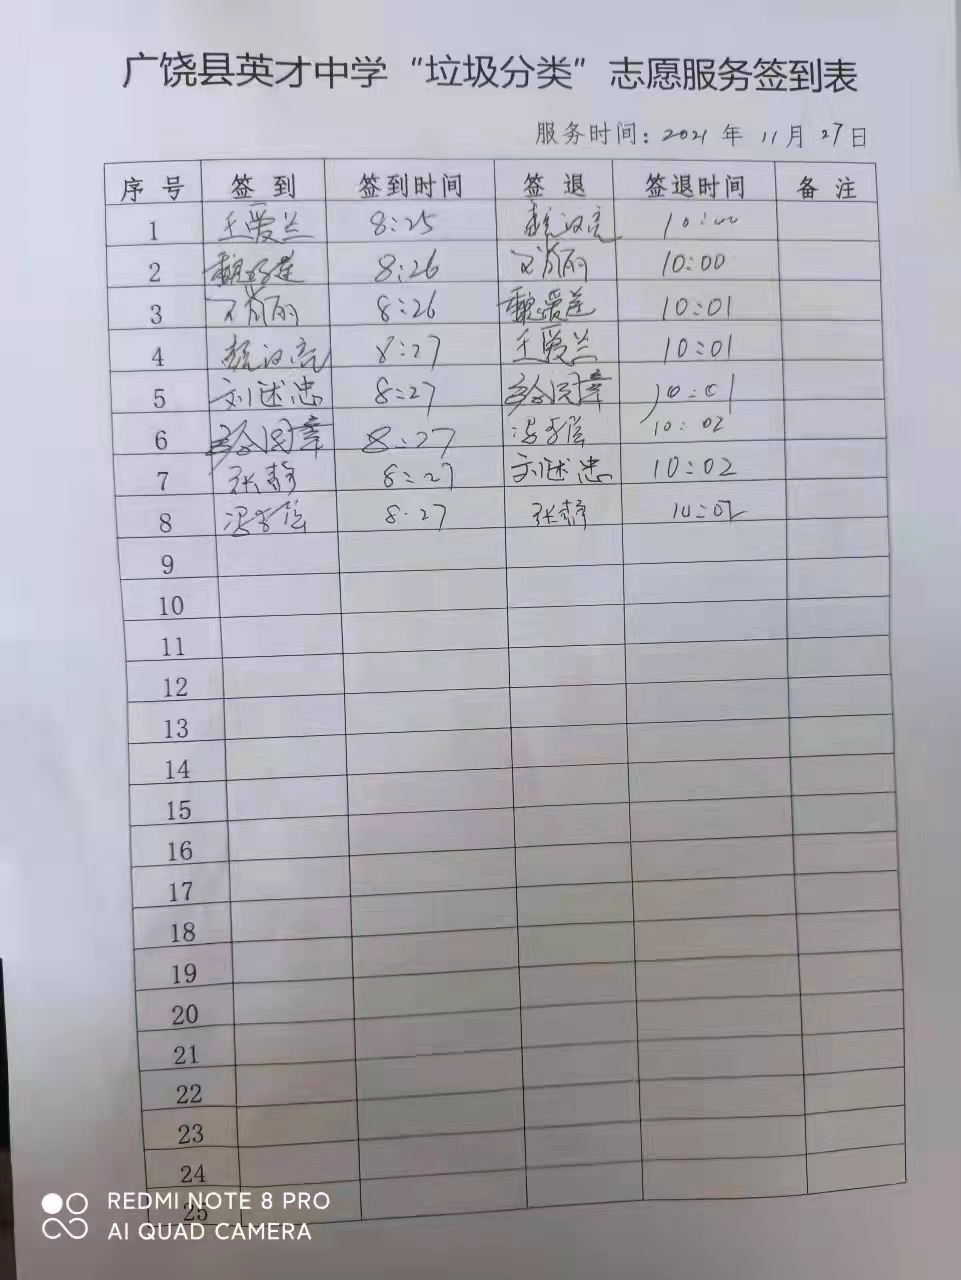 广饶县英才中学“垃圾分类”志愿服务签到表
服务时间：2021 年 11月 27日
序号 签到 签到时间 签退 签退时间 备注
1 王爱兰 8:25 10:00
2 8:26 10:00
3 8:26 10:01
4 8:27 王爱兰 10:01
5 刘述忠 8:27 10:01
6 8:27 10:02
7 张静 8:27 刘述忠 10:02
8 8:27 张静 10:02
9
10
11
12
13
14
15
16
17
18
19
20
21
22
23
24
25
REDMI NOTE 8 PRO
AI QUAD CAMERA